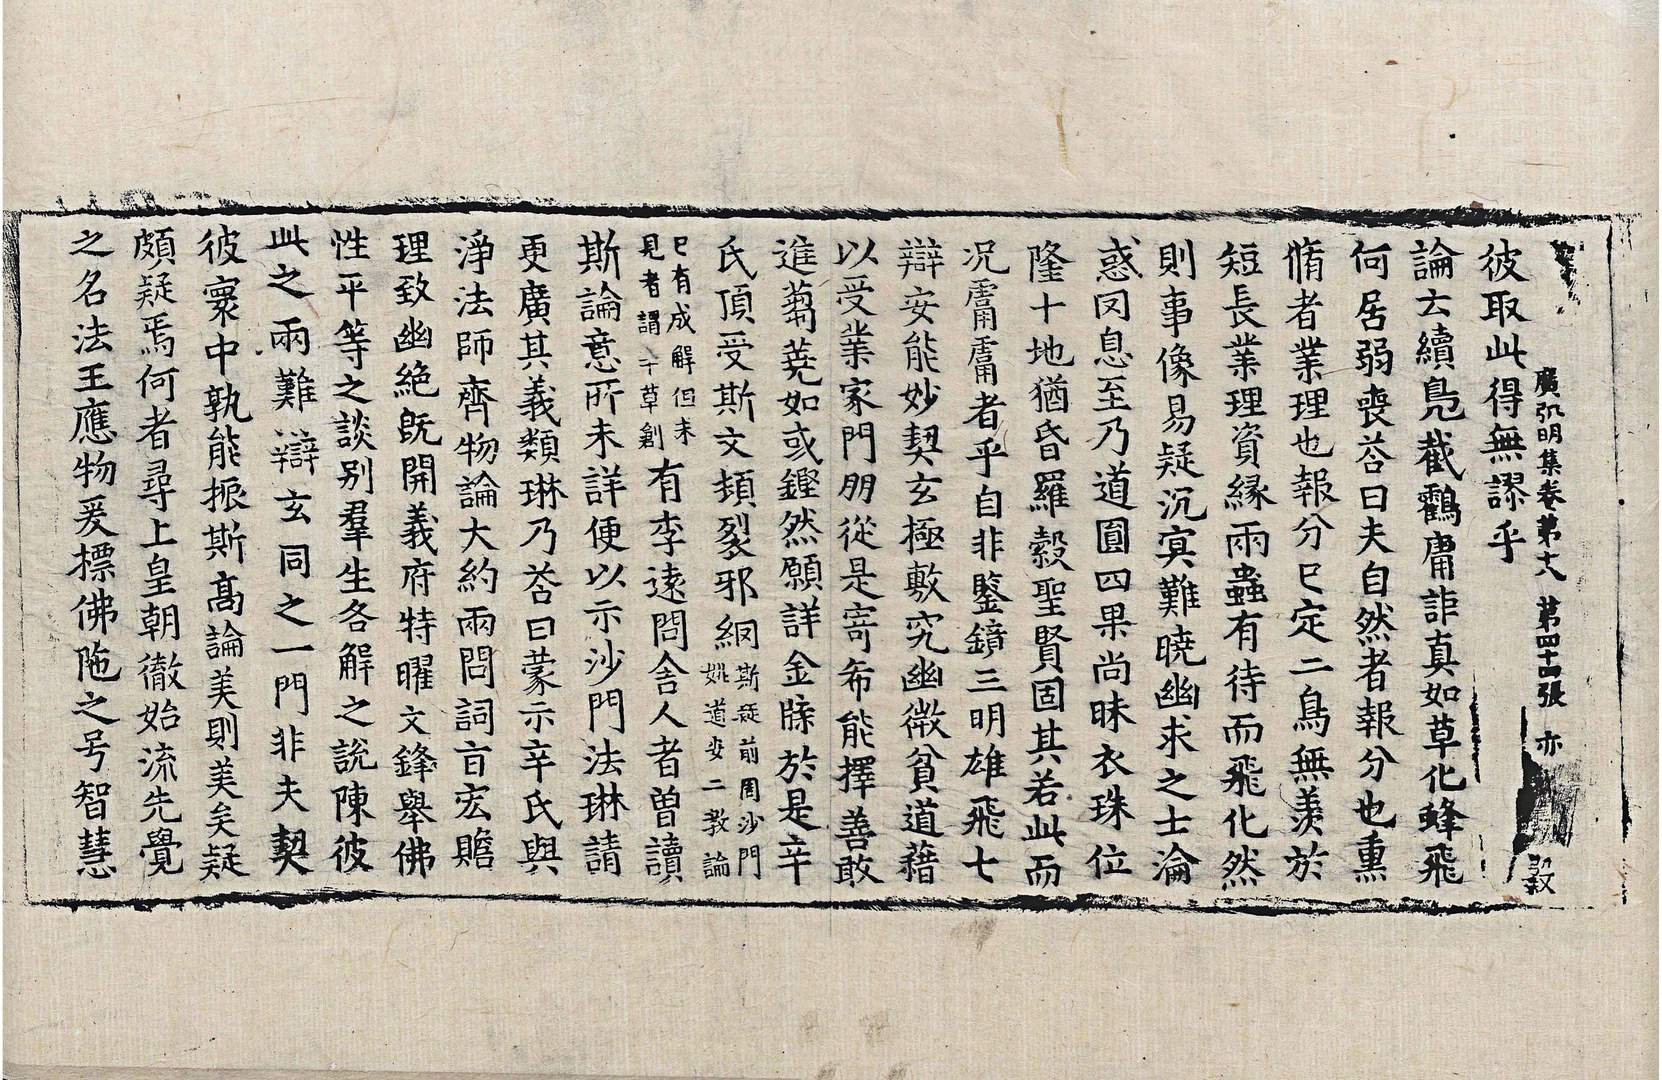 廣弘明集卷第十八 第四十四張 亦
彼取此得無謬乎
論云續鳧截鶴庸詎真如草化蜂飛
何居弱喪荅曰夫自然者報分也熏
脩者業理也報分已定二鳥無羨於
短長業理資緣兩蟲有待而飛化然
則事像易疑沉冥難曉幽求之士淪
惑罔息至乃道圓四果尚昧衣珠位
隆十地猶昏羅縠聖賢固其若此而
況庸庸者乎自非鑒鏡三明雄飛七
辯安能妙契玄極敷究幽微貧道藉
以受業家門朋從是寄希能擇善敢
進蒭蕘如或鏗然願詳金牒於是辛
氏頂受斯文頻裂邪網斯疑前周沙門姚道安二教論
已有成解但未見者謂千草創有李遠問舍人者曾讀
斯論意所未詳便以示沙門法琳請
更廣其義類琳乃荅曰蒙示辛氏與
淨法師齊物論大約兩問詞旨宏贍
理致幽絶旣開義府特曜文鋒舉佛
性平等之談別羣生各解之說陳彼
此之兩難辯玄同之一門非夫契
彼寰中孰能振斯高論美則美矣疑
頗疑焉何者尋上皇朝徹始流先覺
之名法王應物爰標佛陁之号智慧